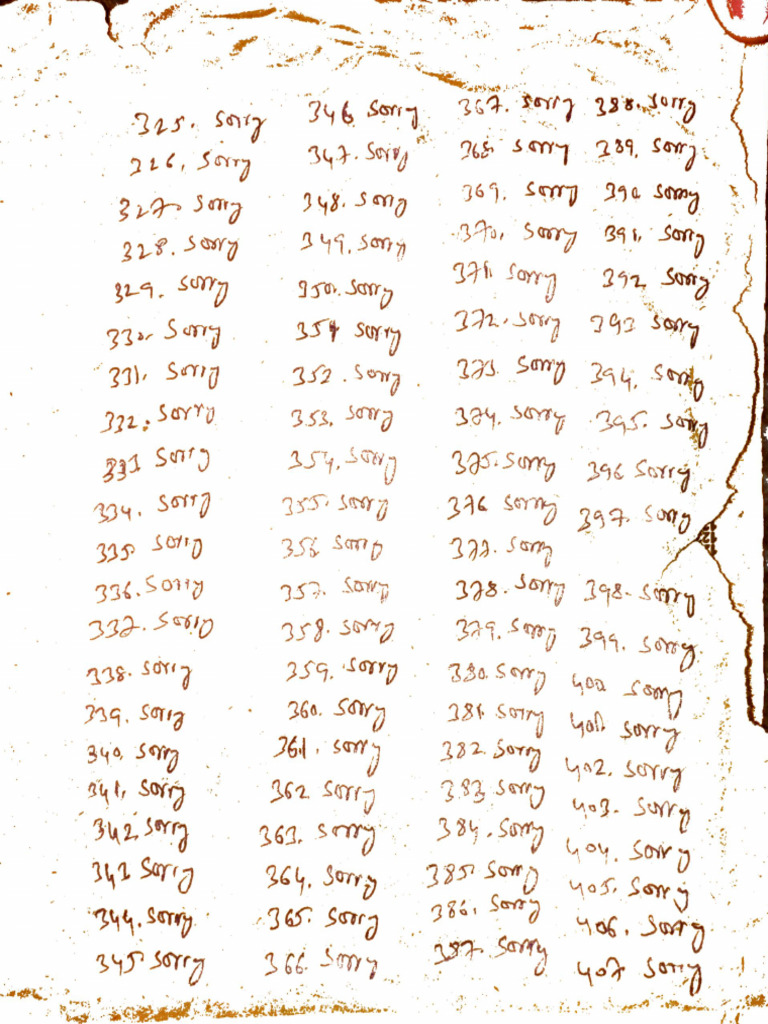 325. Sorry
326. Sorry
327. Sorry
328. Sorry
329. Sorry
330. Sorry
331. Sorry
332. Sorry
333 Sorry
334. Sorry
335. Sorry
336. Sorry
337. Sorry
338. Sorry
339. Sorry
340. Sorry
341. Sorry
342 Sorry
343 Sorry
344. Sorry
345. Sorry
346 Sorry
347. Sorry
348. Sorry
349. Sorry
350. Sorry
351 Sorry
352. Sorry
353. Sorry
354. Sorry
355. Sorry
356 Sorry
357. Sorry
358. Sorry
359. Sorry
360. Sorry
361. Sorry
362 Sorry
363. Sorry
364. Sorry
365. Sorry
366. Sorry
367. Sorry
368. Sorry
369. Sorry
370. Sorry
371. Sorry
372. Sorry
373. Sorry
374. Sorry
375. Sorry
376 Sorry
377. Sorry
378. Sorry
379. Sorry
380. Sorry
381. Sorry
382. Sorry
383 Sorry
384. Sorry
385. Sorry
386. Sorry
387. Sorry
388. Sorry
389. Sorry
390 Sorry
391. Sorry
392 Sorry
393 Sorry
394. Sorry
395. Sorry
396 Sorry
397. Sorry
398. Sorry
399. Sorry
400 Sorry
401. Sorry
402. Sorry
403. Sorry
404. Sorry
405. Sorry
406. Sorry
407 Sorry